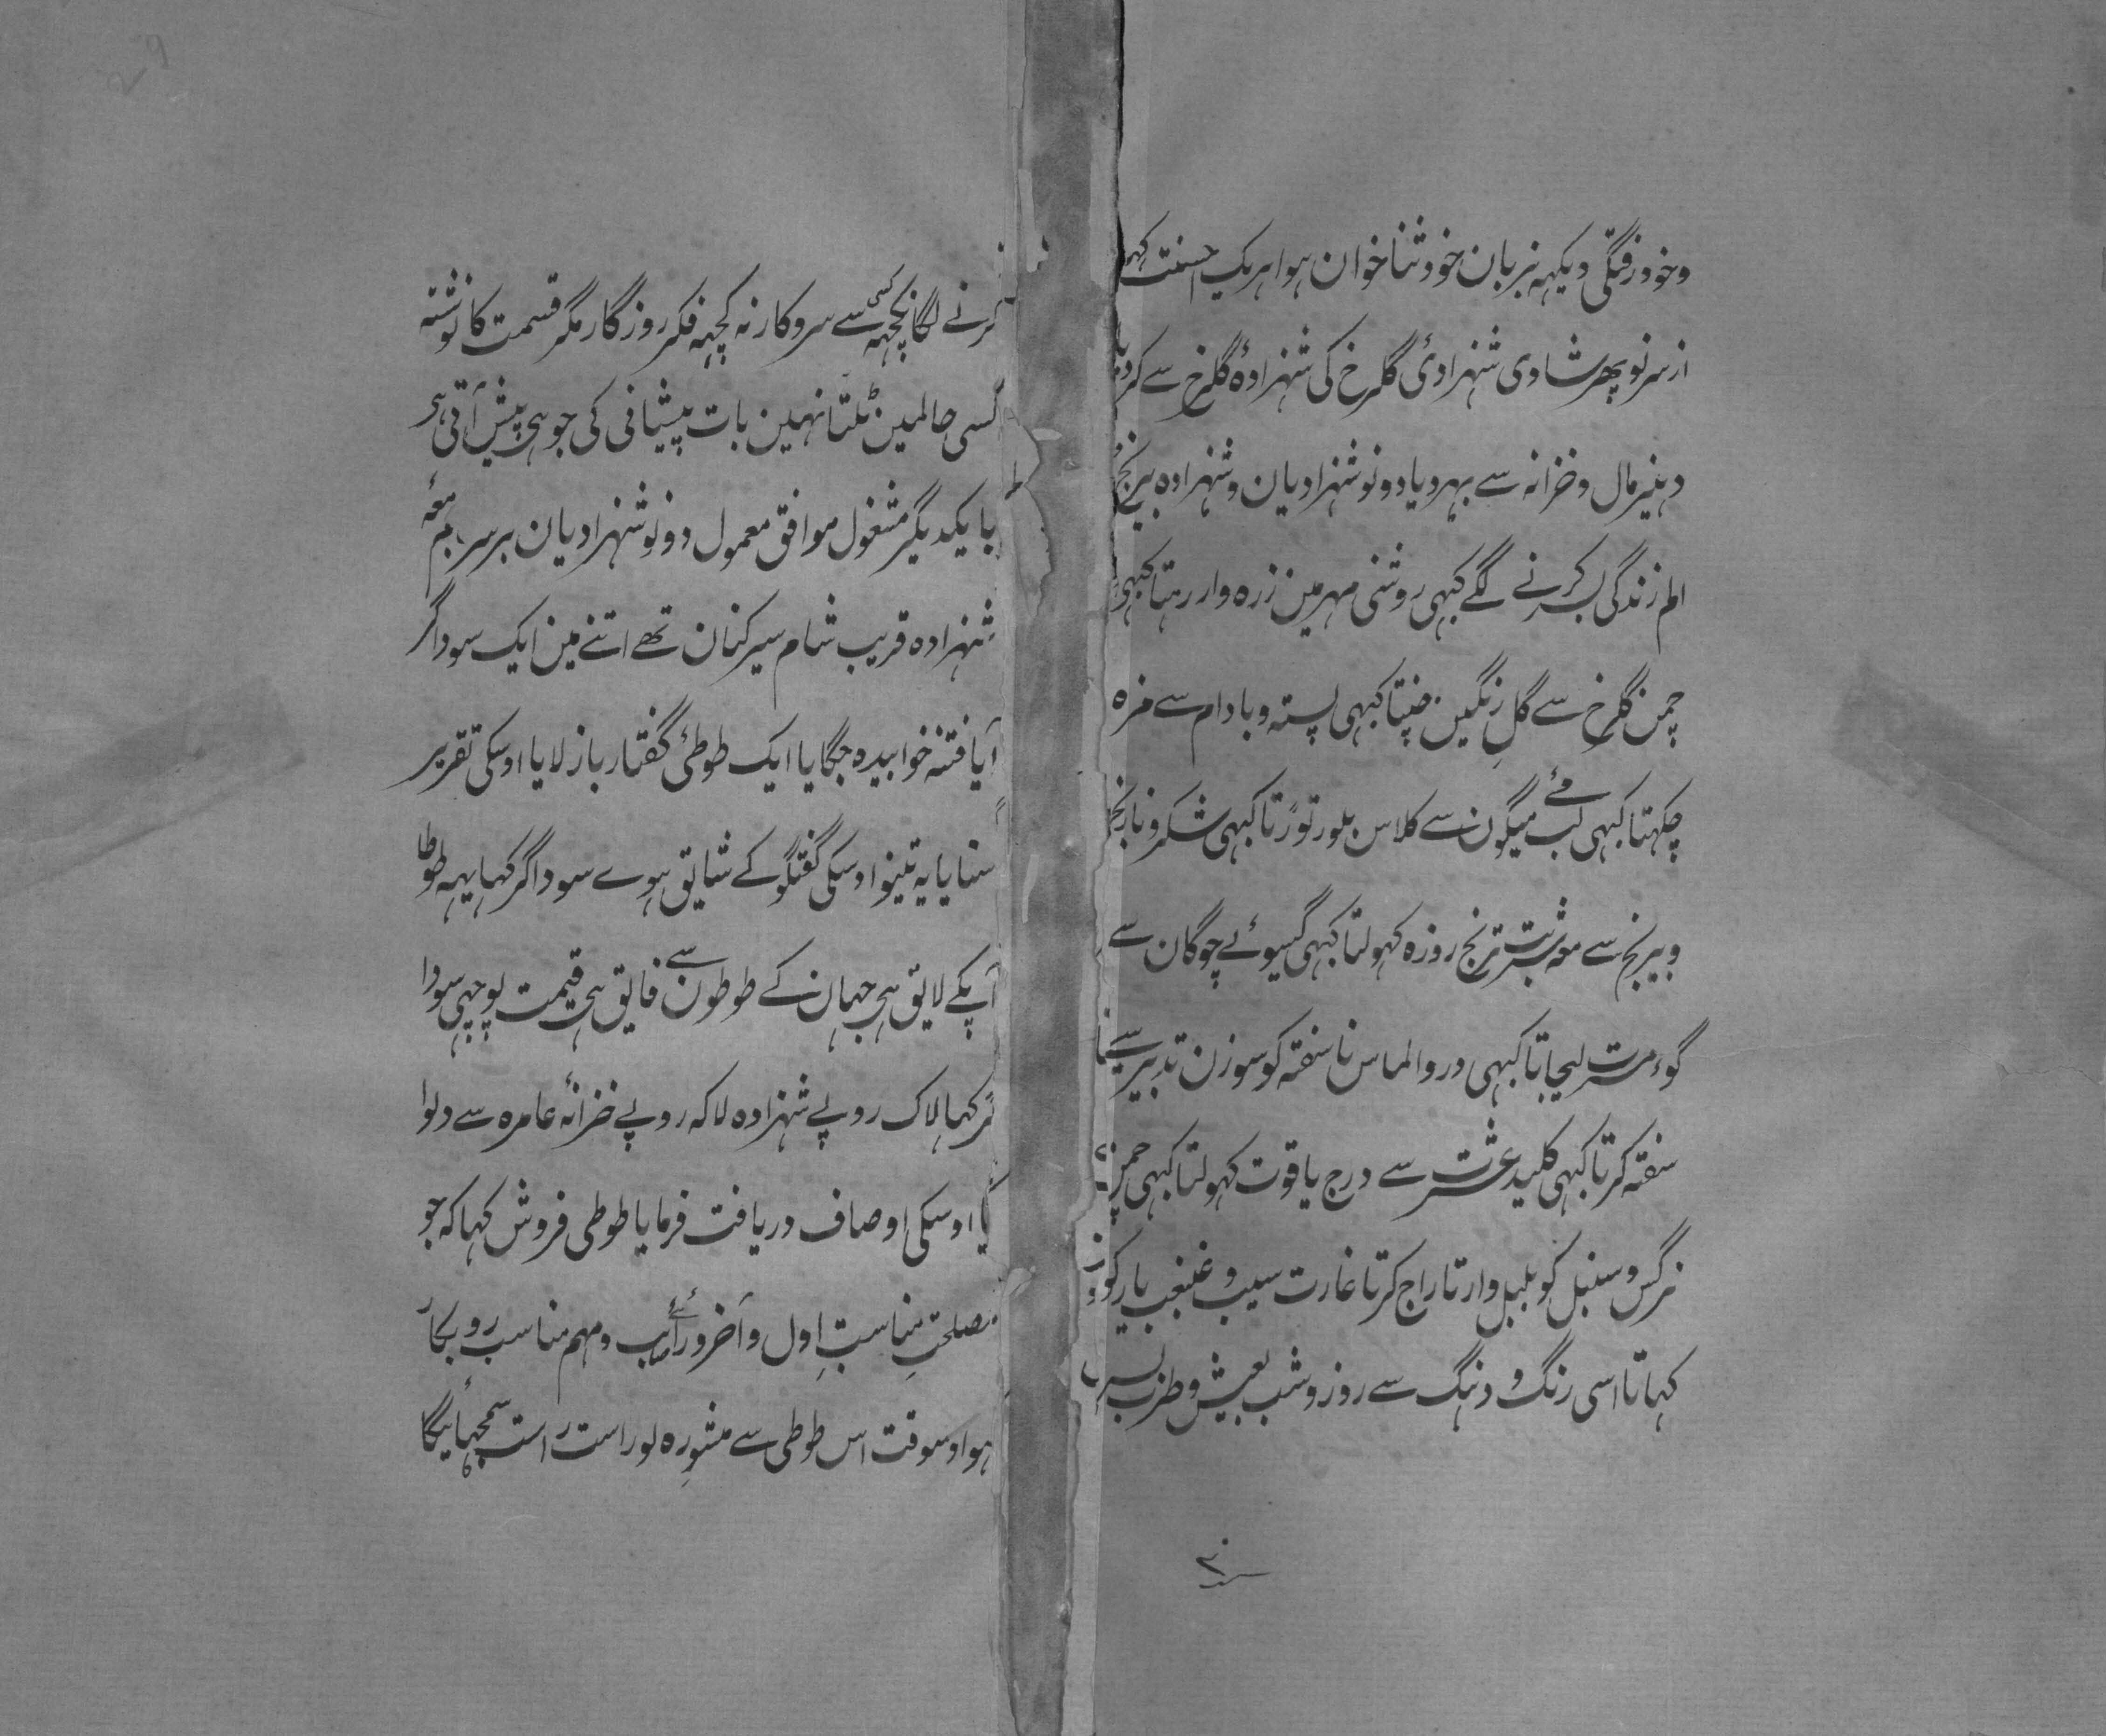 وخودرفتگی دیکہہ بزبان خود ثناخوان ہوا ہریک احسنت کہہ
ازسرنو پھر شادی شہزادئ گلرخ کی شہزادۂ گلرخ سے کردیا
دہنیر مال و خزانہ سے بہر دیا دونو شہزادیان و شہزادہ بیرنج
الم زندگی بسر کرنے لگے کبہی روشنی مہر مین زرہ وار رہتا کبہی
چمن گلرخ سے گلِ رنگیں چنتا کبہی پستہ و بادام سے مزہ
چکہتا کبہی لب میگون سے کلاس بلور توڑتا کبہی شکر و نارنج
و بیرنج سے معہ شربت ترنج روزہ کہولتا کبہی گیسوئے چوگان سے
گوء مسرت لیجاتا کبہی در و الماس ناسفتہ کو سوزن تدبیر سے
سفتہ کرتا کبہی کلید عشرت سے درج یاقوت کہولتا کبہی چمن
نرگس و سنبل کو بلبل وار تاراج کرتا غارت سیب و غبغب یار کو
کہاتا اسی رنگ و دہنگ سے روز و شب بعیش و طرب بسر
۳۰
کرنے لگا نکچہہ کسی سے سروکار نہ کچہہ فکر روزگار مگر قسمت کا نوشتہ
کسی حالمیں ٹلتا نہین بات پیشانی کی جو ہی پیش آتی ہی
بایکدیگر مشغول موافق معمول دونو شہزادیان برسر بام معہ
شہزادہ قریب شام سیرکنان تھے اتنے مین ایک سوداگر
آیا فتنہ خوابیدہ جگایا ایک طوطئ گفتار باز لایا اوسکی تقریر
سنایا یہ تینو اوسکی گفتگو کے شایق ہوے سوداگر کہا یہہ طوطا
آپکے لایق ہی جہان کے طوطون سے فایق ہی قیمت پوچہی سودا
گر کہا لاک روپے شہزادہ لاکہ روپے خزانۂ عامرہ سے دلوا
یا اوسکی اوصاف دریافت فرمایا طوطی فروش کہا کہ جو
مصلحتِ مناسبِ اول و آخر و رائے صایب و مہم مناسب روبکار
ہو اوسوقت اس طوطی سے مشورہ لو راست راست سمجہائیگا